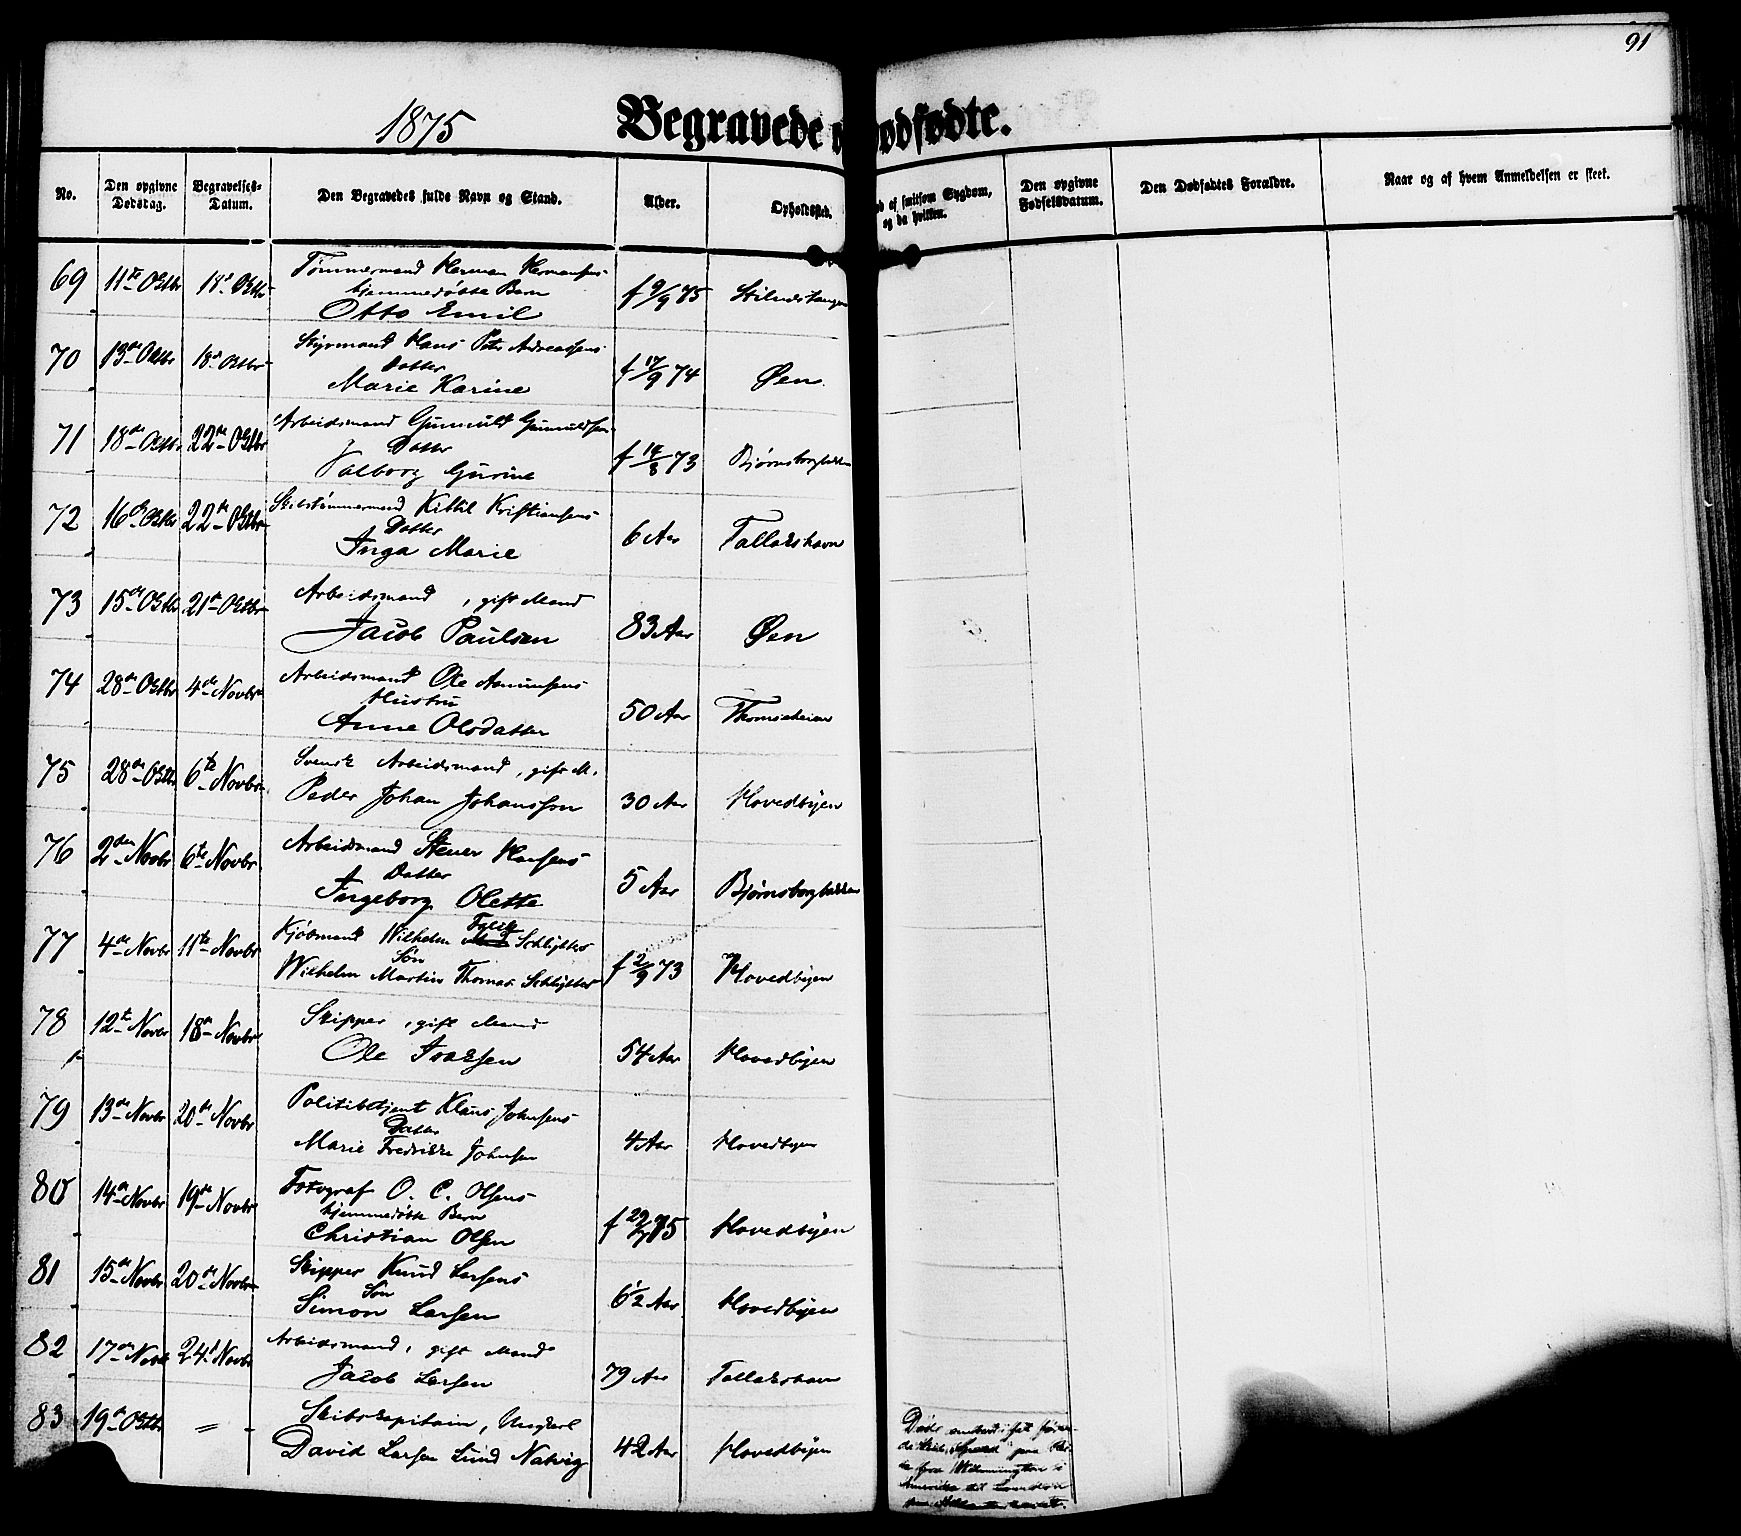 91
1875
Begravede og Dødfødte.
No.
Den opgivne Dødsdag.
Begravelses-Datum.
Den Begravedes fulde Navn og Stand.
Alder.
Opholdssted.
af smitsom Sygdom, og da hvilken.
Den opgivne Fødselsdatum.
Den Dødfødtes Forældre.
Naar og af hvem Anmeldelsen er skeet.
69 11te Octbr 18d Octbr Tømmermand Herman Hermansens
hjemmedøbte Barn
Otto Emil f 9/9 75
70 13de Octbr 18d Octbr Styrmand Hans Peter Andreassens
Datter
Marie Karine f 17/9 74 Øen
71 18de Octbr 22de Octbr Arbeidsmand Gunnuld Gunnuldsens
Datter
Valborg Gurine f 14/8 73 Bjørnsborgbakken
72 16de Octbr 22de Octbr Skibstømmermand Kittil Kristiansens
Datter
Inga Marie 6 Aar Tallakshavn
73 15de Octbr 21de Octbr Arbeidsmand, gift Mand
Jacob Paulsen 83 Aar Øen
74 28de Octbr 4de Novbr Arbeidsmand Ole Amunsens
Hustru
Anne Olsdatter 50 Aar
75 28de Octbr 6te Novbr Svensk Arbeidsmand, gift M.
Peder Johan Johansson 30 Aar Hovedbyen
76 2den Novbr 6te Novbr Arbeidsmand Hansens
Datter
Ingeborg Olette 5 Aar Bjørnsborgbakken
77 4de Novbr 11te Novbr Kjøbmand Wilhelm Schlytters
Søn
Wilhelm Martin Thomas Schlytter f 2/9 73 Hovedbyen
78 12te Novbr 18de Novbr Skipper, gift Mand
Ole Isaksen 54 Aar Hovedbyen
79 13de Novbr 20de Novbr Politibetjent Klaus Johnsens
Datter
Marie Fredrikke Johnsen 4 Aar Hovedbyen
80 14de Novbr 19de Novbr Fotograf O. C. Olsens
hjemmedøbte Barn
Christian Olsen f 75 Hovedbyen
81 15de Novbr 20de Novbr Skipper Knud Larsens
Søn
Simon Larsen 6½ Aar Hovedbyen
82 17de Novbr 24d Novbr Arbeidsmand, gift Mand
Jacob Larsen 79 Aar Tallakshavn
83 19de Octbr = Skibskapitain, Ungkarl
David Larsen Lund Natvig 42 Aar Hovedbyen
Døde ombord i
de Skib paa
se fra Wilmington i
Amerika til London